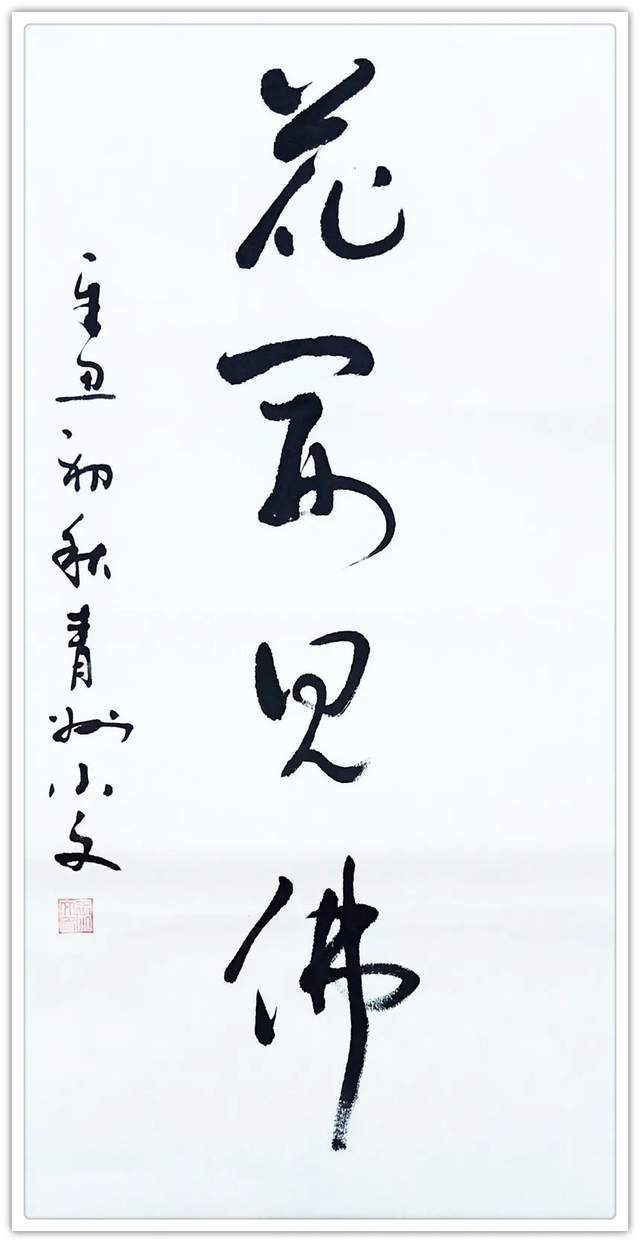 花開見佛
辛丑初秋青州小文